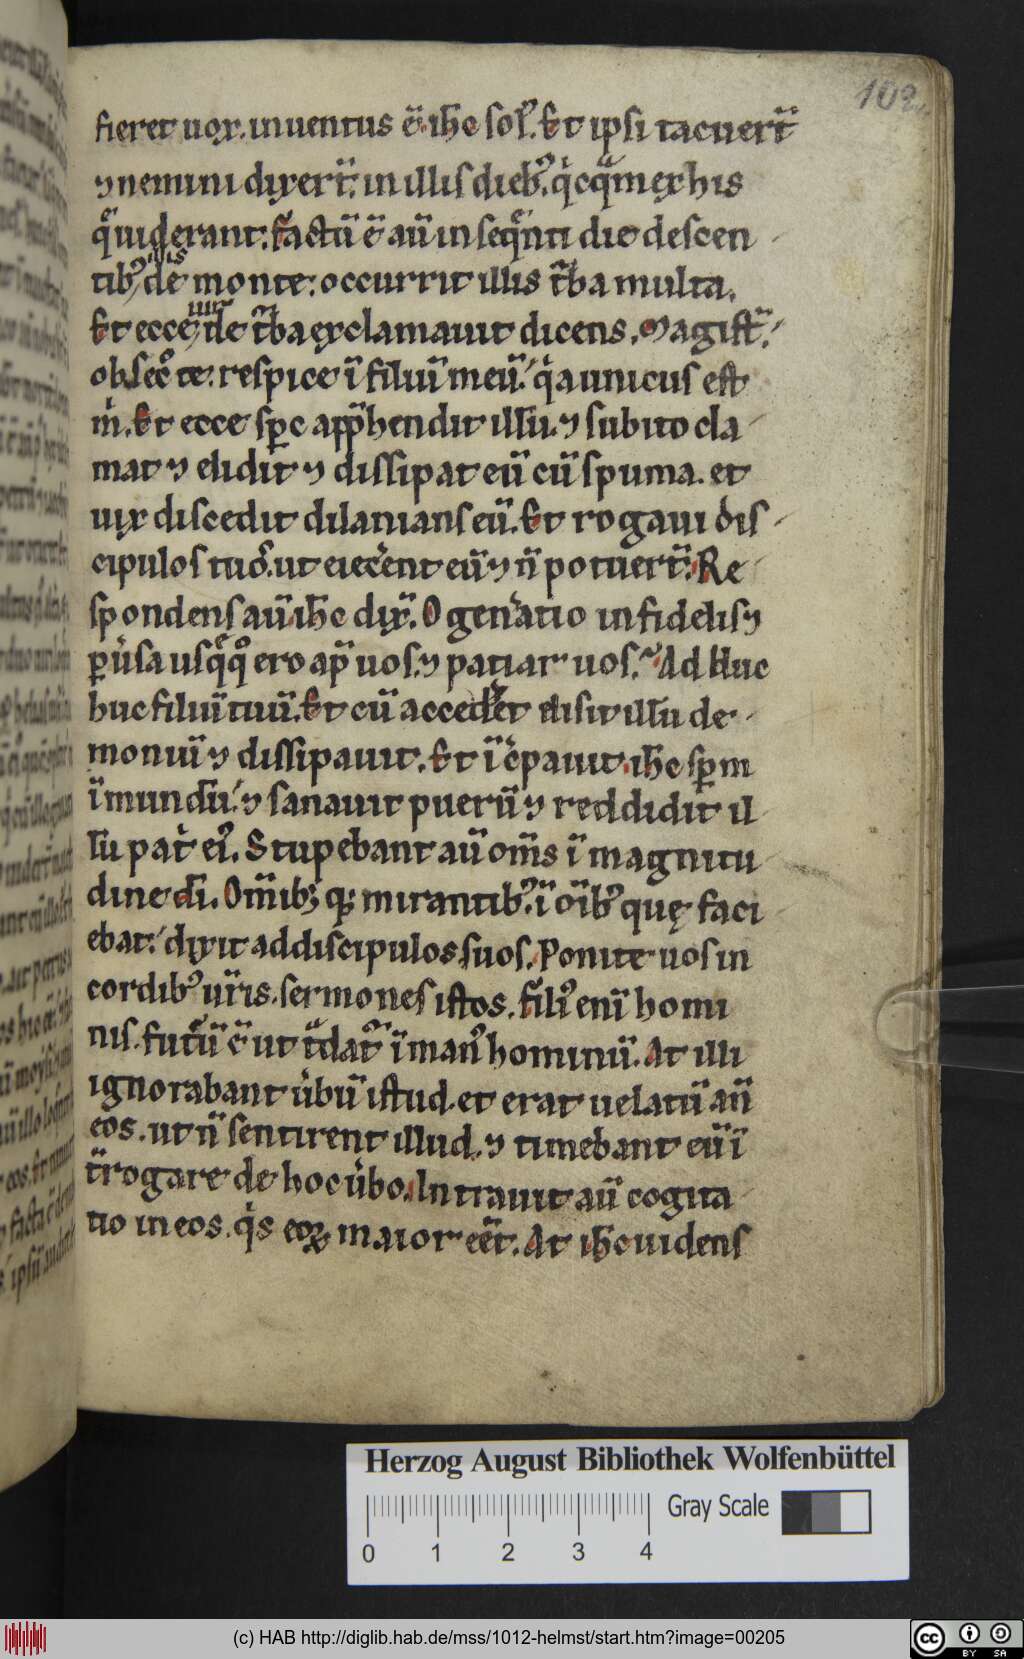 102
fieret uox. inuentus ē. ih̄c sol᷒. Et ip̄si tacuer̄t
⁊ nemini dixer̄t. in illis dieb᷒. qͥcqͣm ex his
qͣ̄ uiderant. fͣctū ē aū in seqͣnti die descen
tib᷒ illis de monte: occurrit illis tͬba multa.
Et ecce uir de tͬba exclamauit dicens. Magist̄.
obsecͦ te. respice ī filiū meū. qͥa unicus est
mͥ. Et ecce sp̄c app̄hendit illū. ⁊ subito cla
mat ⁊ elidit ⁊ dissipat eū cū spuma. et
uix discedit dilanians eū. Et rogaui dis
cipulos tuos. ut eiec̄ent eū ⁊ n̄ potuer̄t. Re
spondens aū ih̄c dix̄. O gen̄atio infidelis ⁊
pͥu̓sa usqͣqͦ ero ap̄ uos. ⁊ patiar uos. Ad huc
huc filiū tuū. Et cū acced̄et elisit illū de
moniū ⁊ dissipauit. Et īc̄pauit ih̄c sp̄m
īmundū. ⁊ sanauit puerū ⁊ reddidit il
lū pat̄ ei᷒. Stupebant aū om̄s ī magnitu
dine dī. Om̄ib; q; mirantib᷒ ī oīb᷒ quę faci
ebat. dixit ad discipulos suos. Ponite uos in
cordib᷒ ur̄is. sermones istos. fīli᷒ enī homi
nis. futͣū ē ut tͣdat᷑ ī man᷒ hominū. At illi
ignorabant u̓bū istud. et erat uelatū an̄
eos. ut n̄ sentirent illud. ⁊ timebant eū ī
t̄rogare de hoc u̓bo. Intrauit aū cogita
tio in eos. qͥs eoꝝ maior eēt. At ih̄c uidens
Herzog August Bibliothek Wolfenbüttel
Gray Scale
0 1 2 3 4
(c) HAB http://diglib.hab.de/mss/1012-helmst/start.htm?image=00205
cc BY SA